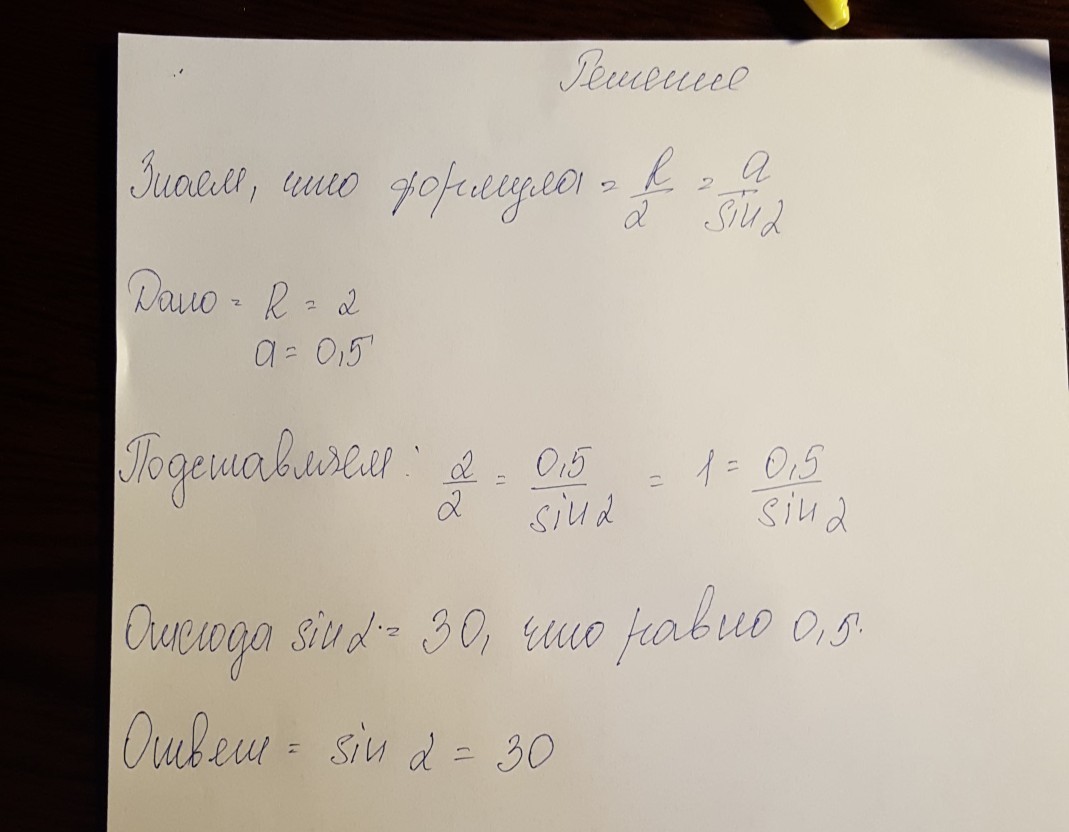 Решение
Знаем, что формула = R/2 = a/sin 2
Дано = R = 2
a = 0,5
Подставляем: 2/2 = 0,5/sin 2 = 1 = 0,5/sin 2
Отсюда sin 2 = 30, что равно 0,5.
Ответ = sin 2 = 30